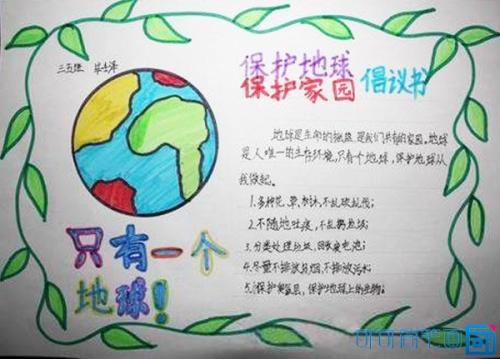 三五班
保护地球
保护家园 倡议书
地球是生命的摇篮,是我们共有的家园,地球
是人唯一的生存环境,只有一个地球,保护地球从
我做起。
1.多种花、草、树木,不乱砍乱伐;
2.不随地吐痰,不乱扔垃圾;
3.分类处理垃圾,回收废电池;
4.尽量不排放废烟,不排放污水;
5.保护,保护地球上的生物;
只有一个
地球!